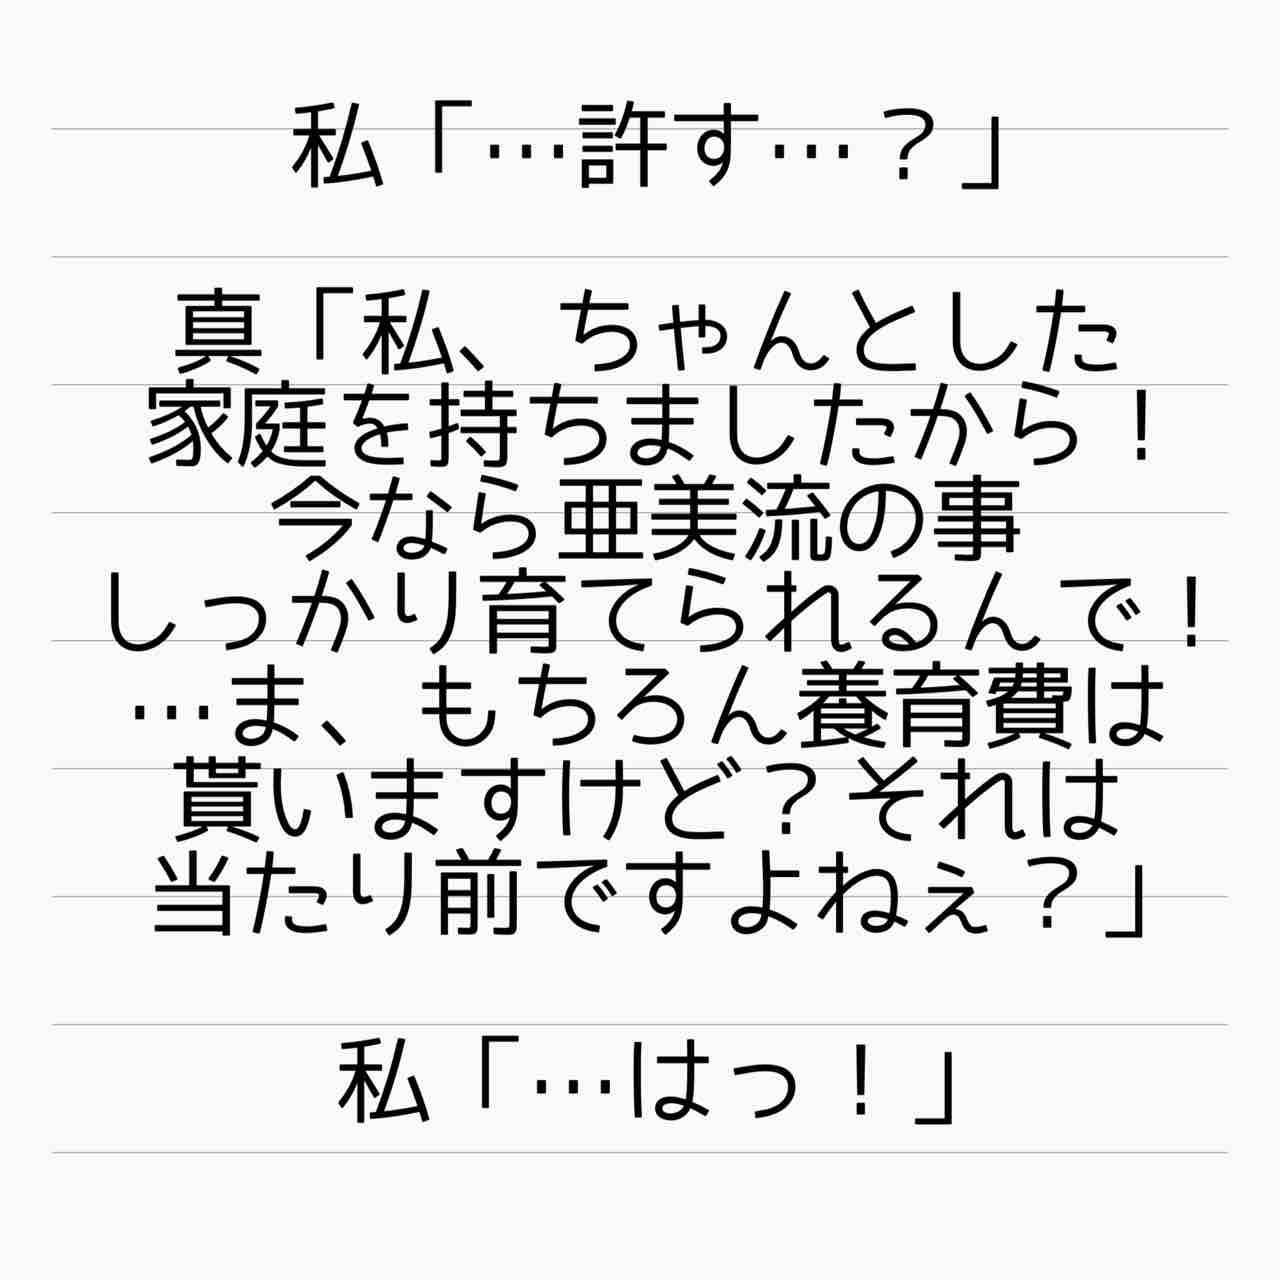 私「…許す…？」
真「私、ちゃんとした
家庭を持ちましたから！
今なら亜美流の事
しっかり育てられるんで！
…ま、もちろん養育費は
貰いますけど？それは
当たり前ですよねぇ？」
私「…はっ！」